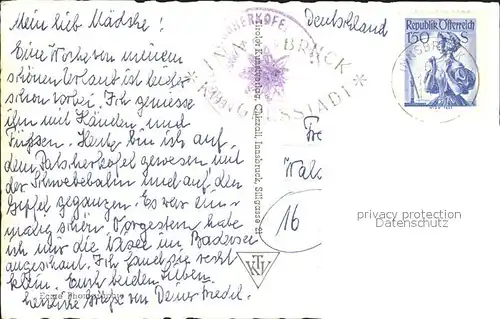 Mein lieb Mädche!
Eine Woche von meinem
schönen Urlaub ist leider
schon vorbei. Ich geniesse
ihn mit Händen und
Füssen. Heute bin ich auf
dem Patscherkofel gewesen mit
der Schwebebahn und auf den
Gipfel gegangen. Es war ein-
malig schön. Vorgestern habe
ich mir die
angeschaut. Ich fand sie recht
klein. Euch beiden Lieben
herzliche Grüsse von Deiner Friedel.
Echte Photographie
Deutschland
INNSBRUCK
KONGRESSTADT
Republik Österreich
1.50 S
INNSBRUCK
Chizzali, Innsbruck, Sillgasse 21
16
privacy protection
Datenschutz